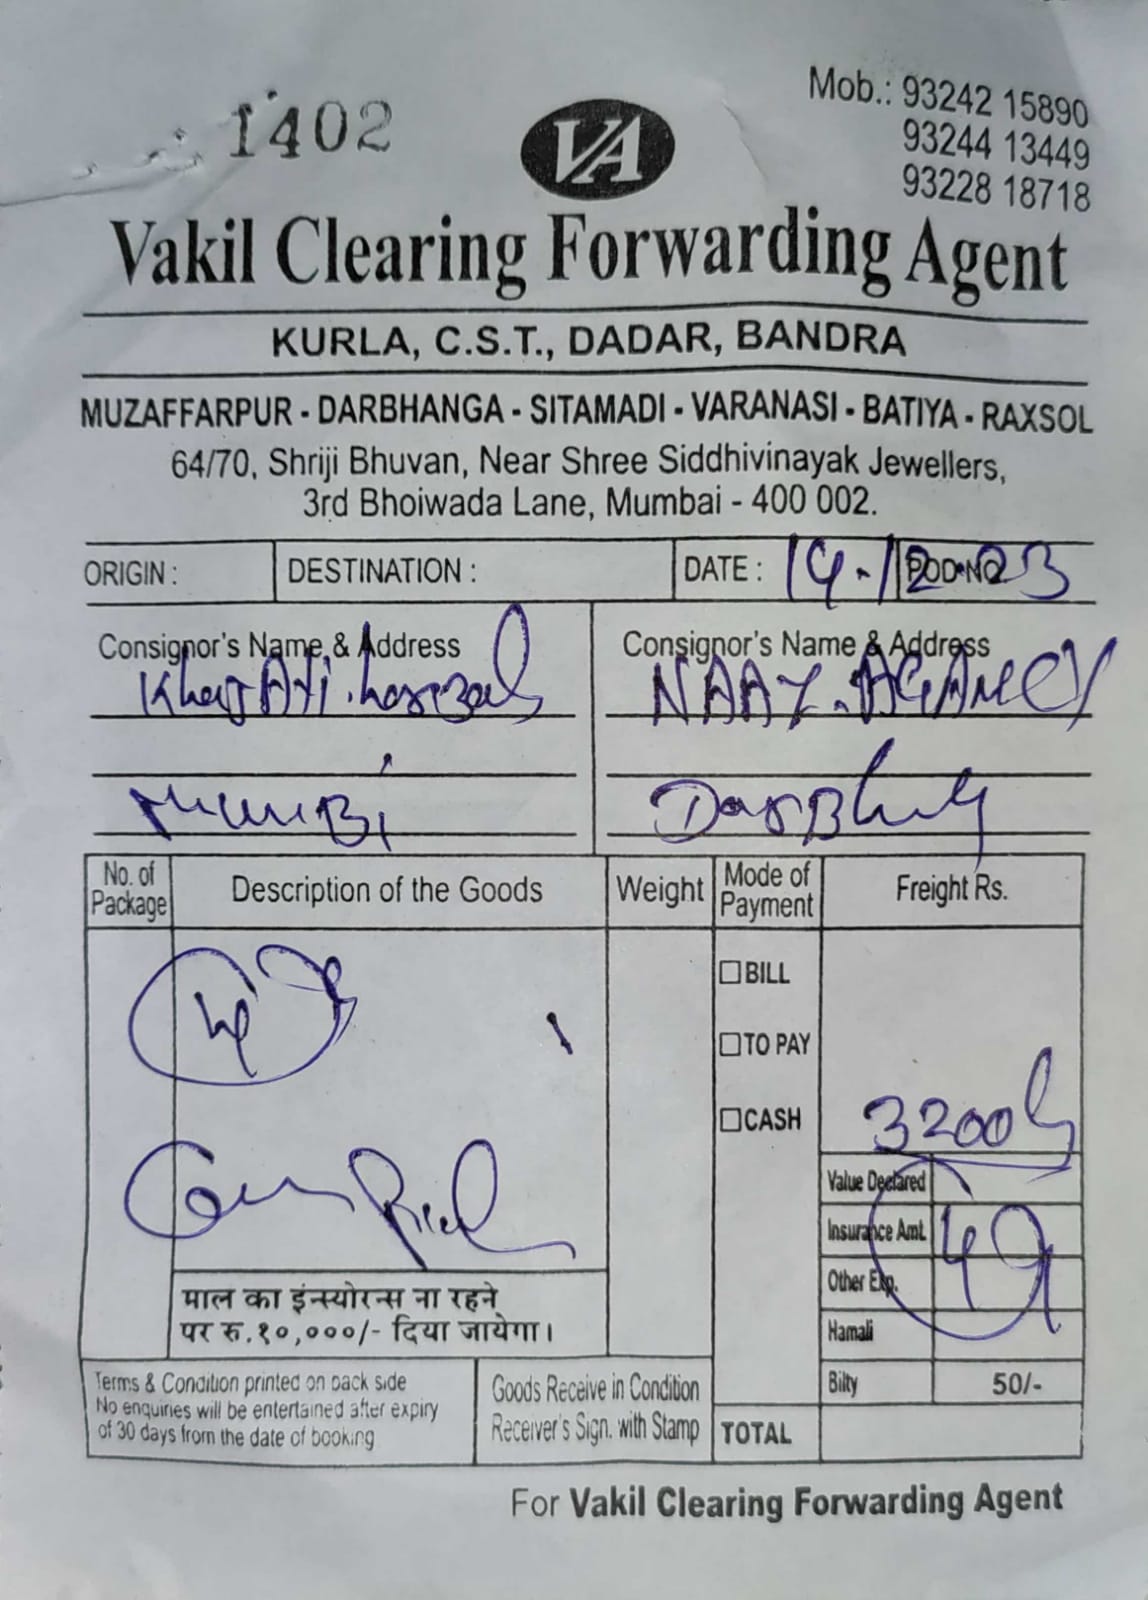 1402
VA
Mob.: 93242 15890
93244 13449
93228 18718
Vakil Clearing Forwarding Agent
KURLA, C.S.T., DADAR, BANDRA
MUZAFFARPUR - DARBHANGA - SITAMADI - VARANASI - BATIYA - RAXSOL
64/70, Shriji Bhuvan, Near Shree Siddhivinayak Jewellers,
3rd Bhoiwada Lane, Mumbai - 400 002.
ORIGIN : DESTINATION : DATE : 14-12-23 POD NO
Consignor's Name & Address Consignor's Name & Address
NAAZ. AGAMCY
No. of Package Description of the Goods Weight Mode of Payment Freight Rs.
BILL
TO PAY
CASH 3200
Value Declared
Insurance Amt.
Other Exp.
Hamali
Bilty 50/-
TOTAL
माल का इंन्स्योरन्स ना रहने
पर रु.१०,०००/- दिया जायेगा।
Terms & Condition printed on back side
No enquiries will be entertained after expiry
of 30 days from the date of booking
Goods Receive in Condition
Receiver's Sign. with Stamp
For Vakil Clearing Forwarding Agent